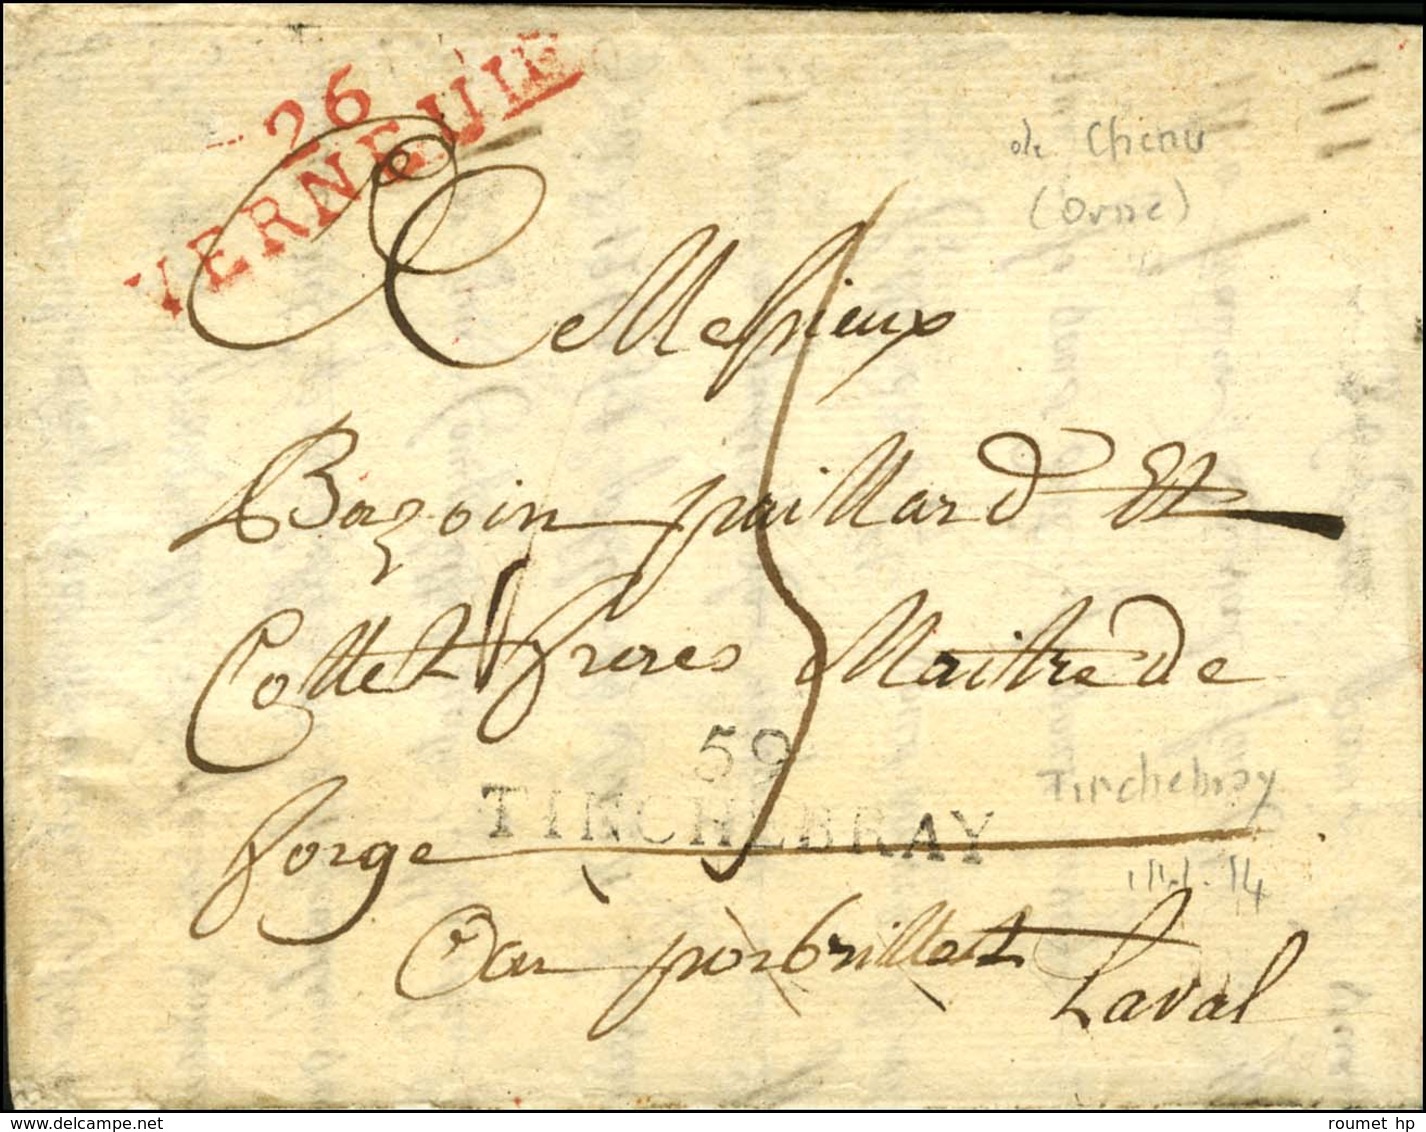 26
VERNEUIL
de Chenu
(Orne)
A Messieux
Bazoin paillard Et
Collet freres Maitre de
59
TINCHEBRAY
Tinchebray
forge
14
au port brillet
Laval
© delcampe.net
roumet hp